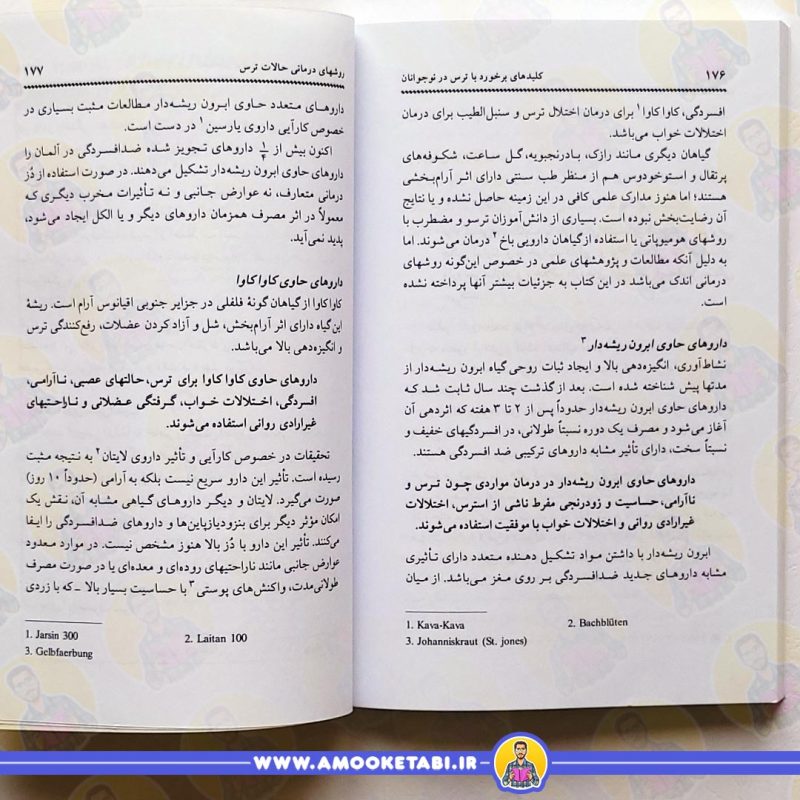 ۱۷۶ کلیدهای برخورد با ترس در نوجوانان
افسردگی، کاوا کاوا ۱ برای درمان اختلال ترس و سنبل‌الطیب برای درمان
اختلالات خواب می‌باشد.
گیاهان دیگری مانند رازک، بادرنجبویه، گـل ساعت، شکـوفه‌های
پرتقال و استوخودوس هم از منظر طب سنتی دارای اثر آرام‌بخشی
هستند؛ اما هنوز مدارک علمی کافی در این زمینه حاصل نشده و یا نتایج
آن رضایت‌بخش نبوده است. بسیاری از دانش‌آموزان ترسو و مضطرب با
روشهای هومیوپاتی یا استفاده از گیاهان دارویی باخ ۲ درمان می‌شوند. اما
به دلیل آنکه مطالعات و پژوهشهای علمی در خصوص این‌گونه روشهای
درمانی اندک می‌باشد در این کتاب به جزئیات بیشتر آنها پرداخته نشده
است.
داروهای حاوی ابرون ریشه‌دار ۳
نشاط‌آوری، انگیزه‌دهی بالا و ایجاد ثبات روحی گیاه ابرون ریشه‌دار از
مدتها پیش شناخته شده است. بعد از گذشت چند سال ثابت شـد کـه
داروهای حاوی ابرون ریشه‌دار حدوداً پس از ۲ تا ۳ هفته که اثردهی آن
آغاز می‌شود و مصرف یک دوره نسبتاً طولانی، در افسردگیهای خفیف و
نسبتاً سخت، دارای تأثیر مشابه داروهای ترکیبی ضد افسردگی هستند.
داروهای حاوی ابرون ریشه‌دار در درمان مواردی چـون تـرس و
ناآرامی، حساسیت و زودرنجی مفرط ناشی از استرس، اختلالات
غیرارادی روانی و اختلالات خواب با موفقیت استفاده می‌شوند.
ابرون ریشه‌دار با داشتن مواد تشکیل دهنده متعدد دارای تأثیری
مشابه داروهای جدید ضدافسردگی بر روی مغز می‌باشد. از میان
1. Kava-Kava 2. Bachblüten
3. Johanniskraut (St. jones)
روشهای درمانی حالات ترس ۱۷۷
داروهـای متعـدد حاوی ابرون ریشه‌دار مطالعات مثبت بسیاری در
خصوص کارآیی داروی یارسین ۱ در دست است.
اکنون بیش از ۱/۴ داروهای تجویز شده ضدافسردگی در آلمان را
داروهای حاوی ابرون ریشه‌دار تشکیل می‌دهند. در صورت استفاده از دُز
درمانی متعارف، نه عوارض جانبی و نه تـأثیرات مخرب دیگـری کـه
معمولاً در اثر مصرف همزمان داروهای دیگر و یا الکل ایجاد می‌شود،
پدید نمی‌آید.
داروهای حاوی کاوا کاوا
کاوا کاوا از گیاهان گونهٔ فلفلی در جزایر جنوبی اقیانوس آرام است. ریشهٔ
این گیاه دارای اثر آرام‌بخش، شل و آزاد کردن عضلات، رفع‌کنندگی ترس
و انگیزه‌دهی بالا می‌باشد.
داروهای حاوی کاوا کاوا برای ترس، حالتهای عصبی، ناآرامی،
افسردگی، اختلالات خواب، گرفتگی عضلانی و ناراحتیهای
غیرارادی روانی استفاده می‌شوند.
تحقیقات در خصوص کارآیی و تأثیر داروی لایتان ۲ به نتیجه مثبت
رسیده است. تأثیر این دارو سریع نیست بلکه به آرامی (حدوداً ۱۰ روز)
صورت می‌گیرد. لایتان و دیگـر داروهـای گیاهی مشابه آن، نقش یک
امکان مؤثر دیگر برای بنزودیازپاین‌ها و داروهای ضدافسردگی را ایفا
می‌کنند. تأثیر این دارو با دُز بالا هنوز مشخص نیست. در موارد معدود
عوارض جانبی مانند ناراحتیهای روده‌ای و معده‌ای یا در صورت مصرف
طولانی‌مدت، واکنش‌های پوستی ۳ با حساسیت بسیار بالا ـ که با زردی
1. Jarsin 300 2. Laitan 100
3. Gelbfaerbung
WWW.AMOOKETABI.IR